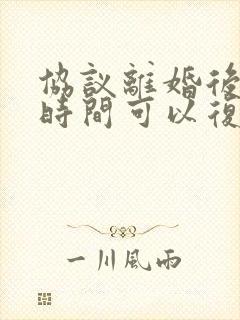 協議離婚後
時間可以復
一川風雨